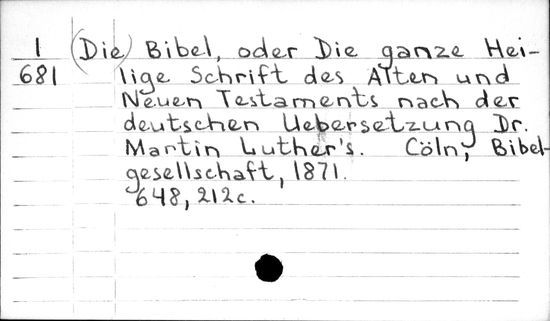 1 (Die) Bibel, oder Die ganze Hei-
681 lige Schrift des Alten und
Neuen Testaments nach der
deutschen Uebersetzung Dr.
Martin Luther's. Cöln, Bibel-
gesellschaft, 1871.
648, 212c.